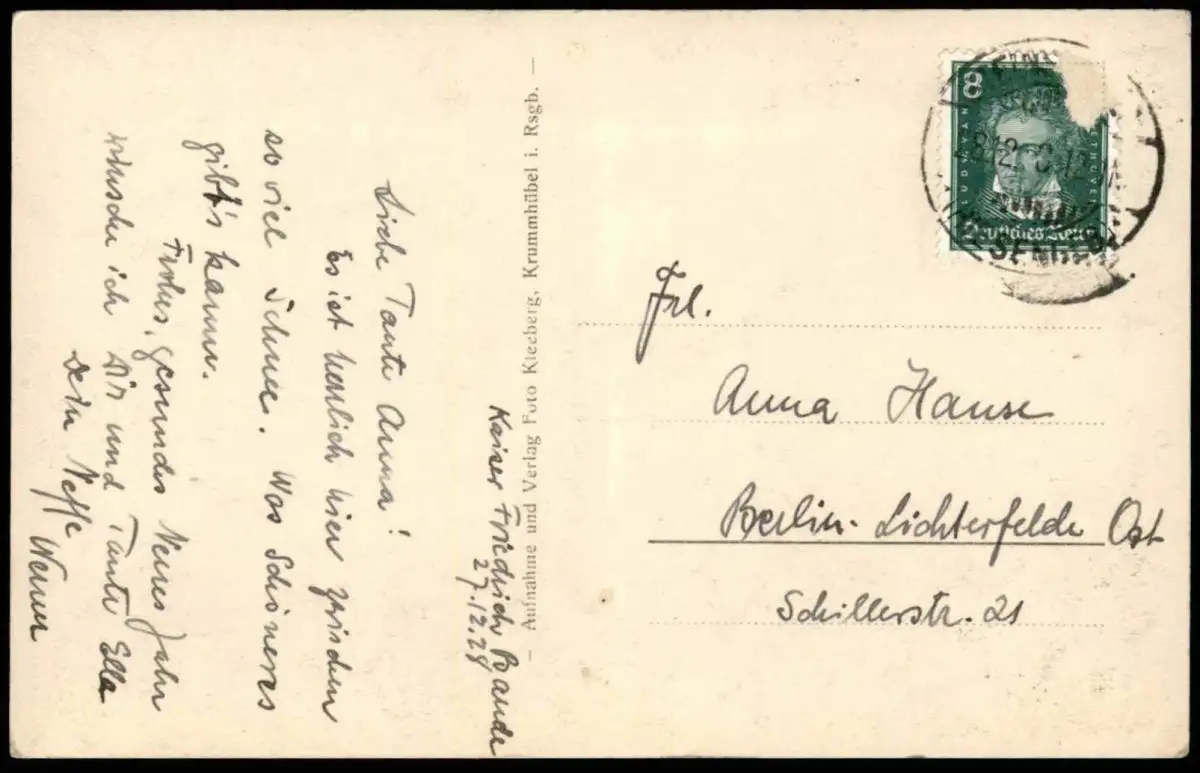 Kaiser Friedrich Baude
27.12.28
Liebe Tante Anna!
Es ist herrlich hier zwischen
so viel Schnee. Was Schöneres
gibt's kaum.
Frohes, gesundes Neues Jahr
wünsche ich Dir und Tante Ella
Dein Neffe
Werner
– Aufnahme und Verlag Foto Kleeberg, Krummhübel i. Rsgb. –
8
Deutsches Reich
Frl.
Anna Hanse
Berlin-Lichterfelde Ost
Schillerstr. 21